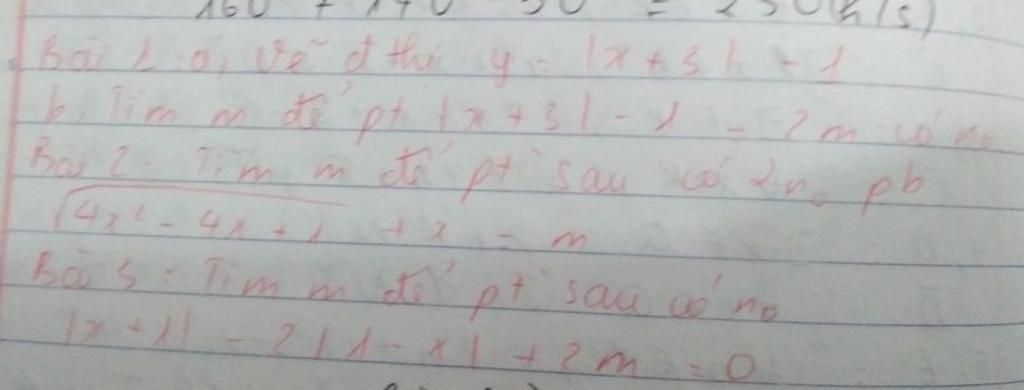 160 + 140 - 50 = 250 (h/s)
Bài 1. a, Vẽ đ thị y = |x + 3| - 1
b, Tìm m để pt |x + 3| - 1 = 2m có n₀
Bài 2. Tìm m để pt sau có 2n₀ pb
√(4x² - 4x + 1) + x = m
Bài 3: Tìm m để pt sau có n₀
|x + 1| - 2|1 - x| + 2m = 0